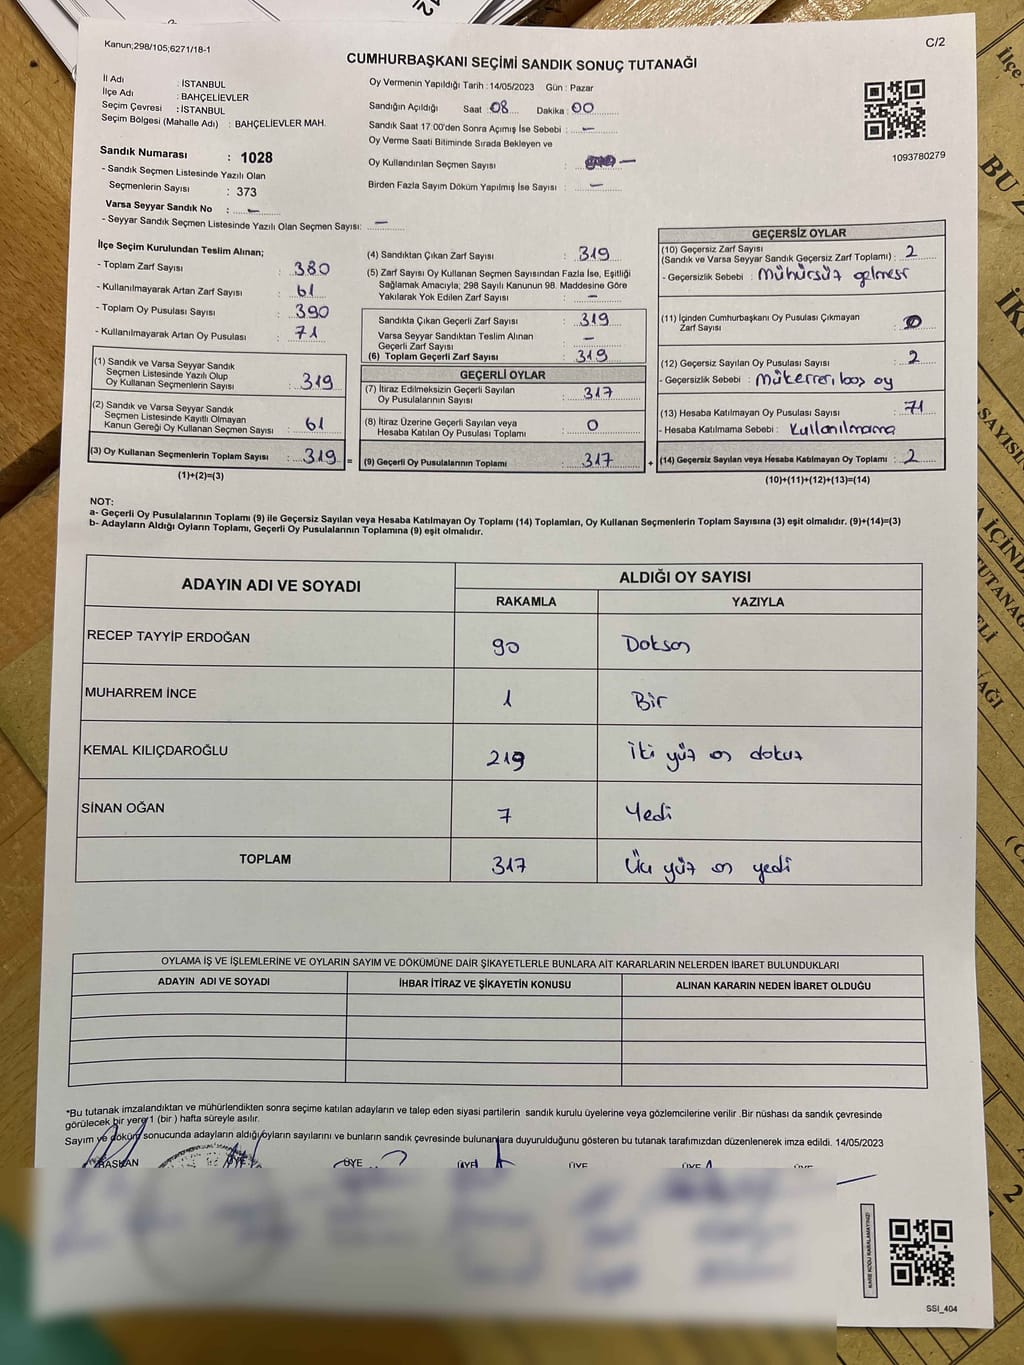 Kanun;298/105;6271/18-1
C/2
CUMHURBAŞKANI SEÇİMİ SANDIK SONUÇ TUTANAĞI
İl Adı : İSTANBUL
İlçe Adı : BAHÇELİEVLER
Seçim Çevresi : İSTANBUL
Seçim Bölgesi (Mahalle Adı) : BAHÇELİEVLER MAH.
Sandık Numarası : 1028
- Sandık Seçmen Listesinde Yazılı Olan
Seçmenlerin Sayısı : 373
Varsa Seyyar Sandık No : -
- Seyyar Sandık Seçmen Listesinde Yazılı Olan Seçmen Sayısı: -
Oy Vermenin Yapıldığı Tarih : 14/05/2023 Gün : Pazar
Sandığın Açıldığı Saat : 08 Dakika : 00
Sandık Saat 17:00'den Sonra Açımış İse Sebebi : -
Oy Verme Saati Bitiminde Sırada Bekleyen ve
Oy Kullandırılan Seçmen Sayısı : -
Birden Fazla Sayım Döküm Yapılmış İse Sayısı : -
1093780279
İlçe Seçim Kurulundan Teslim Alınan;
- Toplam Zarf Sayısı : 380
- Kullanılmayarak Artan Zarf Sayısı : 61
- Toplam Oy Pusulası Sayısı : 390
- Kullanılmayarak Artan Oy Pusulası : 71
(1) Sandık ve Varsa Seyyar Sandık
Seçmen Listesinde Yazılı Olup
Oy Kullanan Seçmenlerin Sayısı : 319
(2) Sandık ve Varsa Seyyar Sandık
Seçmen Listesinde Kayıtlı Olmayan
Kanun Gereği Oy Kullanan Seçmen Sayısı : 61
(3) Oy Kullanan Seçmenlerin Toplam Sayısı : 319 =
(1)+(2)=(3)
(4) Sandıktan Çıkan Zarf Sayısı : 319
(5) Zarf Sayısı Oy Kullanan Seçmen Sayısından Fazla İse, Eşitliği
Sağlamak Amacıyla; 298 Sayılı Kanunun 98. Maddesine Göre
Yakılarak Yok Edilen Zarf Sayısı : -
Sandıkta Çıkan Geçerli Zarf Sayısı : 319
Varsa Seyyar Sandıktan Teslim Alınan
Geçerli Zarf Sayısı : -
(6) Toplam Geçerli Zarf Sayısı : 319
GEÇERLİ OYLAR
(7) İtiraz Edilmeksizin Geçerli Sayılan
Oy Pusulalarının Sayısı : 317
(8) İtiraz Üzerine Geçerli Sayılan veya
Hesaba Katılan Oy Pusulası Toplamı : 0
(9) Geçerli Oy Pusulalarının Toplamı : 317 +
GEÇERSİZ OYLAR
(10) Geçersiz Zarf Sayısı
(Sandık ve Varsa Seyyar Sandık Geçersiz Zarf Toplamı) : 2
- Geçersizlik Sebebi : Mühürsüz gelmesi
(11) İçinden Cumhurbaşkanı Oy Pusulası Çıkmayan
Zarf Sayısı : 0
(12) Geçersiz Sayılan Oy Pusulası Sayısı : 2
- Geçersizlik Sebebi : Mükerrer, boş oy
(13) Hesaba Katılmayan Oy Pusulası Sayısı : 71
- Hesaba Katılmama Sebebi : Kullanılmama
(14) Geçersiz Sayılan veya Hesaba Katılmayan Oy Toplamı : 2
(10)+(11)+(12)+(13)=(14)
NOT:
a- Geçerli Oy Pusulalarının Toplamı (9) ile Geçersiz Sayılan veya Hesaba Katılmayan Oy Toplamı (14) Toplamları, Oy Kullanan Seçmenlerin Toplam Sayısına (3) eşit olmalıdır. (9)+(14)=(3)
b- Adayların Aldığı Oyların Toplamı, Geçerli Oy Pusulalarının Toplamına (9) eşit olmalıdır.
ADAYIN ADI VE SOYADI
ALDIĞI OY SAYISI
RAKAMLA YAZIYLA
RECEP TAYYİP ERDOĞAN 90 Doksan
MUHARREM İNCE 1 Bir
KEMAL KILIÇDAROĞLU 219 İki yüz on dokuz
SİNAN OĞAN 7 Yedi
TOPLAM 317 Üç yüz on yedi
OYLAMA İŞ VE İŞLEMLERİNE VE OYLARIN SAYIM VE DÖKÜMÜNE DAİR ŞİKAYETLERLE BUNLARA AİT KARARLARIN NELERDEN İBARET BULUNDUKLARI
ADAYIN ADI VE SOYADI İHBAR İTİRAZ VE ŞİKAYETİN KONUSU ALINAN KARARIN NEDEN İBARET OLDUĞU
*Bu tutanak imzalandıktan ve mühürlendikten sonra seçime katılan adayların ve talep eden siyasi partilerin sandık kurulu üyelerine veya gözlemcilerine verilir .Bir nüshası da sandık çevresinde
görülecek bir yere 1 (bir ) hafta süreyle asılır.
Sayım ve döküm sonucunda adayların aldığı oyların sayılarını ve bunların sandık çevresinde bulunanlara duyurulduğunu gösteren bu tutanak tarafımızdan düzenlenerek imza edildi. 14/05/2023
BAŞKAN ÜYE ÜYE ÜYE ÜYE ÜYE
KARE KODU KARALAMAYINIZ!
SSI_404
İlçe
BU
İKİ
SAYISIN
İÇİND
TUTANAĞ